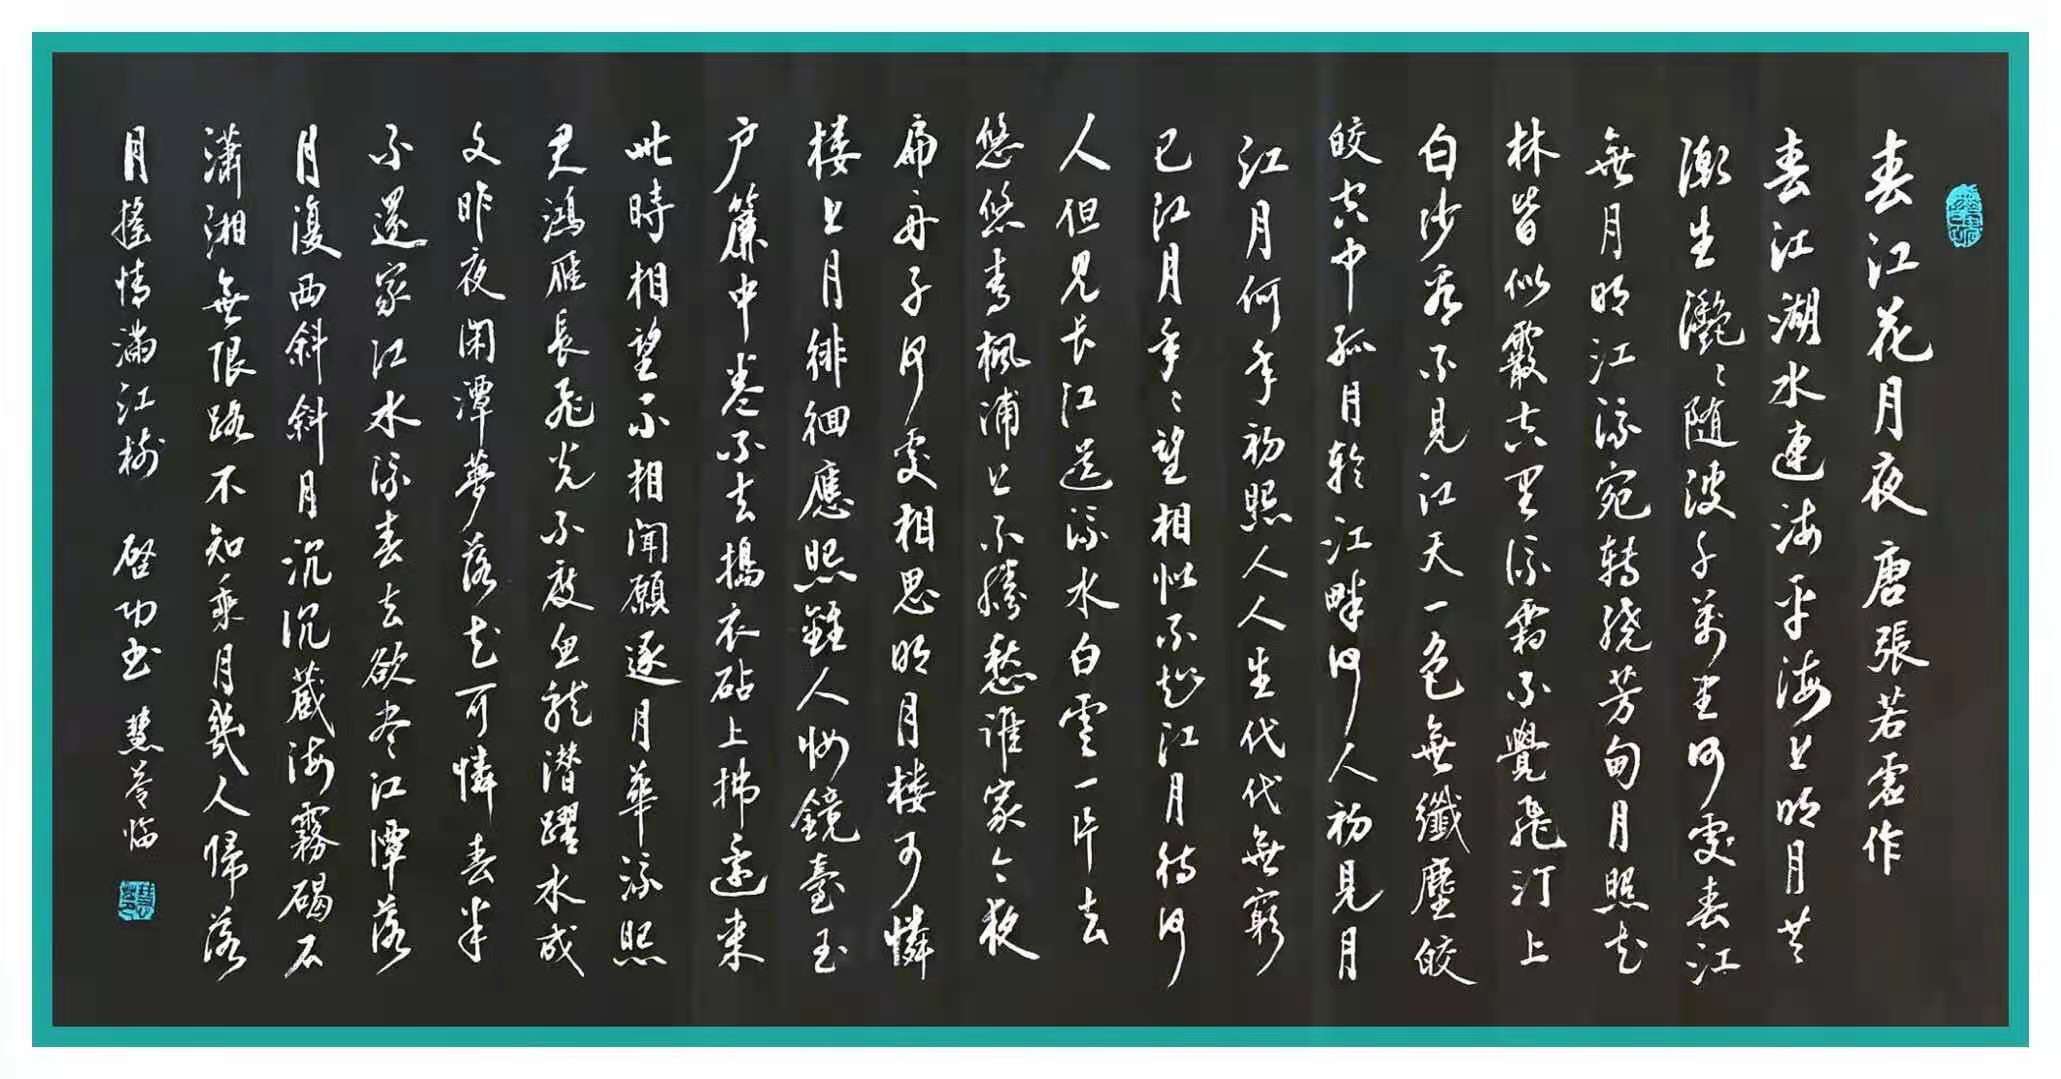 春江花月夜 唐張若虚作
春江潮水連海平海上明月共
潮生灧〻随波千萬里何處春江
無月明江流宛转繞芳甸月照花
林皆似霰空里流霜不覺飛汀上
白沙看不見江天一色無纖塵皎
皎空中孤月輪江畔何人初見月
江月何年初照人人生代代無窮
已江月年〻望相似不知江月待何
人但見长江送流水白雲一片去
悠悠青楓浦上不勝愁誰家今夜
扁舟子何處相思明月楼可憐
楼上月徘徊應照離人妝鏡臺玉
户簾中卷不去搗衣砧上拂還来
此時相望不相聞願逐月華流照
君鴻雁長飛光不度魚龍潜躍水成
文昨夜閑潭夢落花可憐春半
不還家江水流春去欲尽江潭落
月復西斜斜月沉沉蔵海霧碣石
瀟湘無限路不知乘月幾人歸落
月摇情满江樹 啓功书 慧苓临